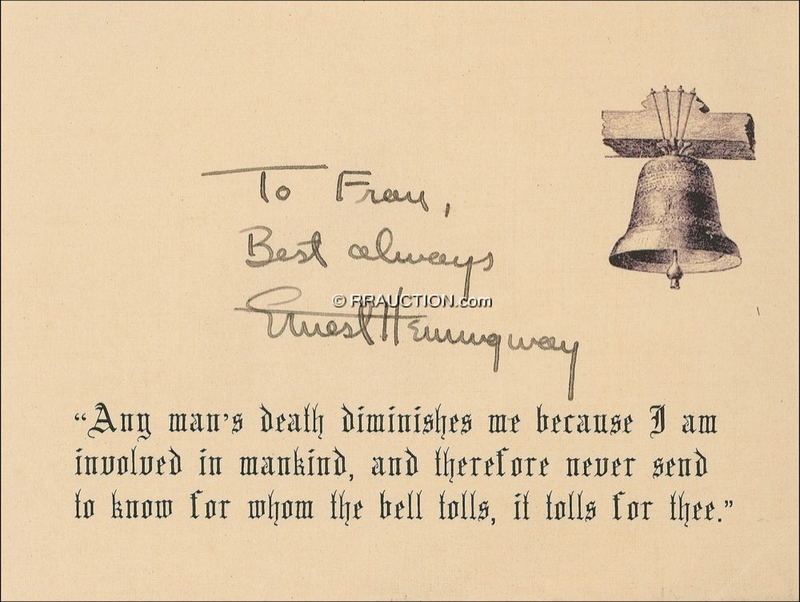 To Fran,
Best always
© RRAUCTION.com
Ernest Hemingway
“Any man's death diminishes me because I am
involved in mankind, and therefore never send
to know for whom the bell tolls, it tolls for thee.”